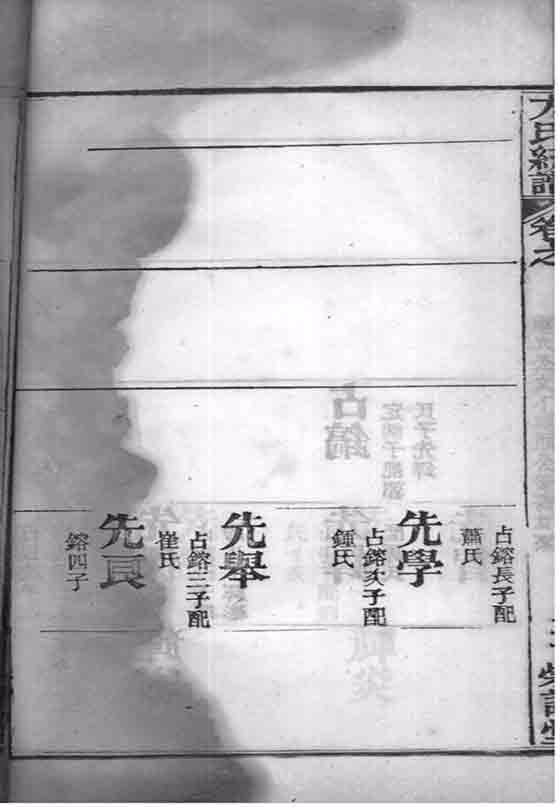 卷之
占鎔長子配
蕭氏
先學
占鎔次子配
鍾氏
先舉
占鎔三子配
崔氏
先良
鎔四子